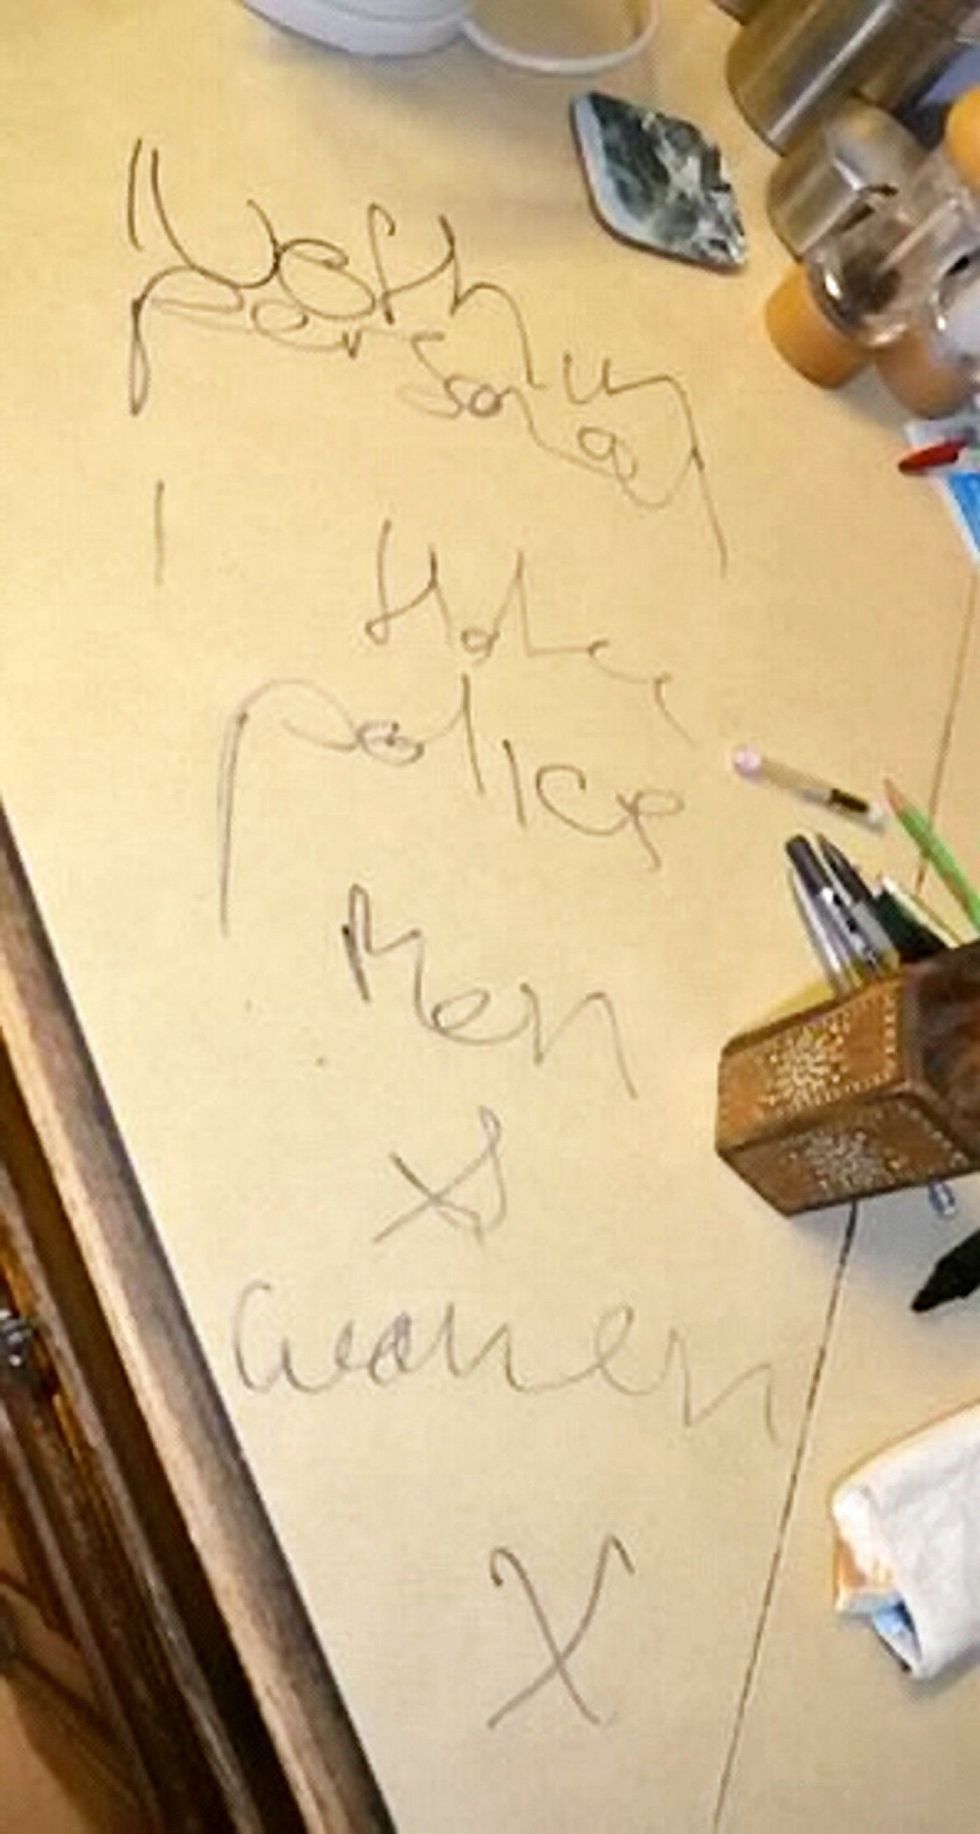 Noth in
personal
I Hate
police
Men
X
Women
X